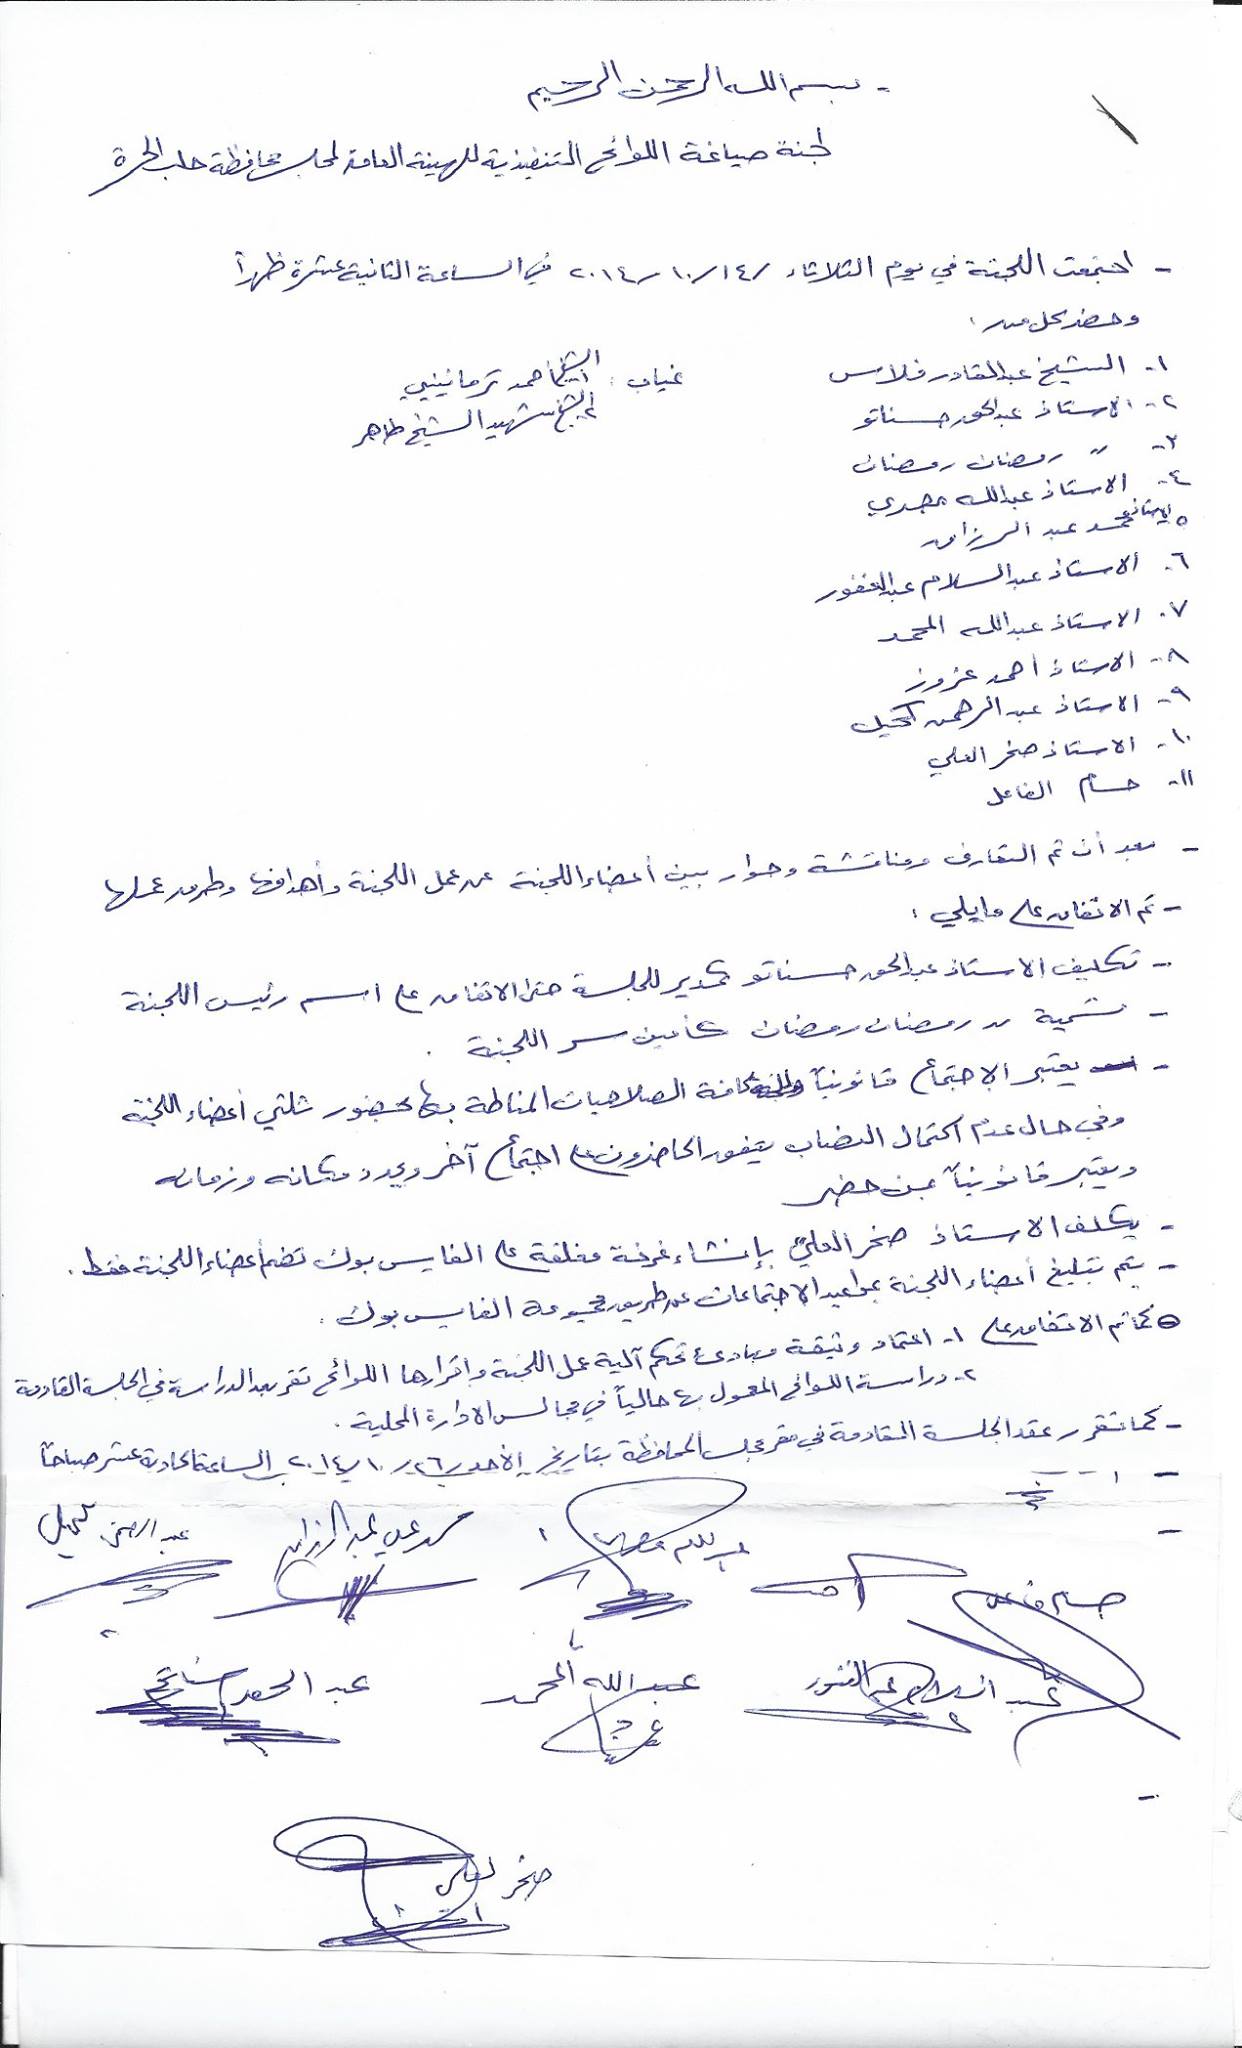 - بسم الله الرحمن الرحيم
لجنة صياغة اللوائح التنفيذية للهيئة العامة لمجلس محافظة حلب الحرة
- اجتمعت اللجنة في يوم الثلاثاء ١٤/١٠/٢٠١٤ في الساعة الثانية عشرة ظهراً
وحضر كل من :
١- الشيخ عبدالقادر فلاس
غياب : الشيخ أحمد ترمانيني
٢- الاستاذ عبدالحق حسناتو
الشيخ شهيد الشيخ طاهر
٣- " رمضان رمضان
٤- الاستاذ عبدالله مصري
٥- الاستاذ محمد عبد الرزاق
٦- الاستاذ عبدالسلام عبدالغفور
٧- الاستاذ عبدالله المحمد
٨- الاستاذ أحمد عزوز
٩- الاستاذ عبدالرحمن كحيل
١٠- الاستاذ صخر العلي
١١- حسام الفاعل
- بعد أن تم التعارف ومناقشة وحوار بين أعضاء اللجنة عن عمل اللجنة وأهدافها وطرق عملها
- تم الاتفاق على مايلي :
- تكليف الاستاذ عبدالحق حسناتو كمدير للجلسة حتى الاتفاق على اسم رئيس اللجنة
- تسمية رمضان رمضان كأمين سر اللجنة .
- يعتبر الاجتماع قانونياً وللجنة كافة الصلاحيات المناطة بها بحضور ثلثي أعضاء اللجنة
وفي حال عدم اكتمال النصاب يتفق الحاضرون على اجتماع آخر ويحدد مكانه وزمانه
ويعتبر قانونياً بمن حضر
- يكلف الاستاذ صخر العلي بإنشاء غرفة مغلقة على الفايس بوك تضم أعضاء اللجنة فقط .
- يتم تبليغ أعضاء اللجنة بمواعيد الاجتماعات عن طريق مجموعة الفايس بوك .
كما تم الاتفاق على ١- اعتماد وثيقة مبادئ تحكم آلية عمل اللجنة وإقرارها اللوائح تقر بعد الدراسة في الجلسة القادمة
٢- دراسة اللوائح المعمول بها حالياً في مجالس الادارة المحلية .
- كما تقرر عقد الجلسة القادمة في مقر مجلس المحافظة بتاريخ الأحد ٢٦/١٠/٢٠١٤ الساعة الحادية عشر صباحاً
عبدالله مصري محمد علي عبدالرزاق عبدالرحمن كحيل
حسام فاعل
عبد السلام عبدالغفور عبدالله المحمد عبد الحق حسناتو
صخر العلي